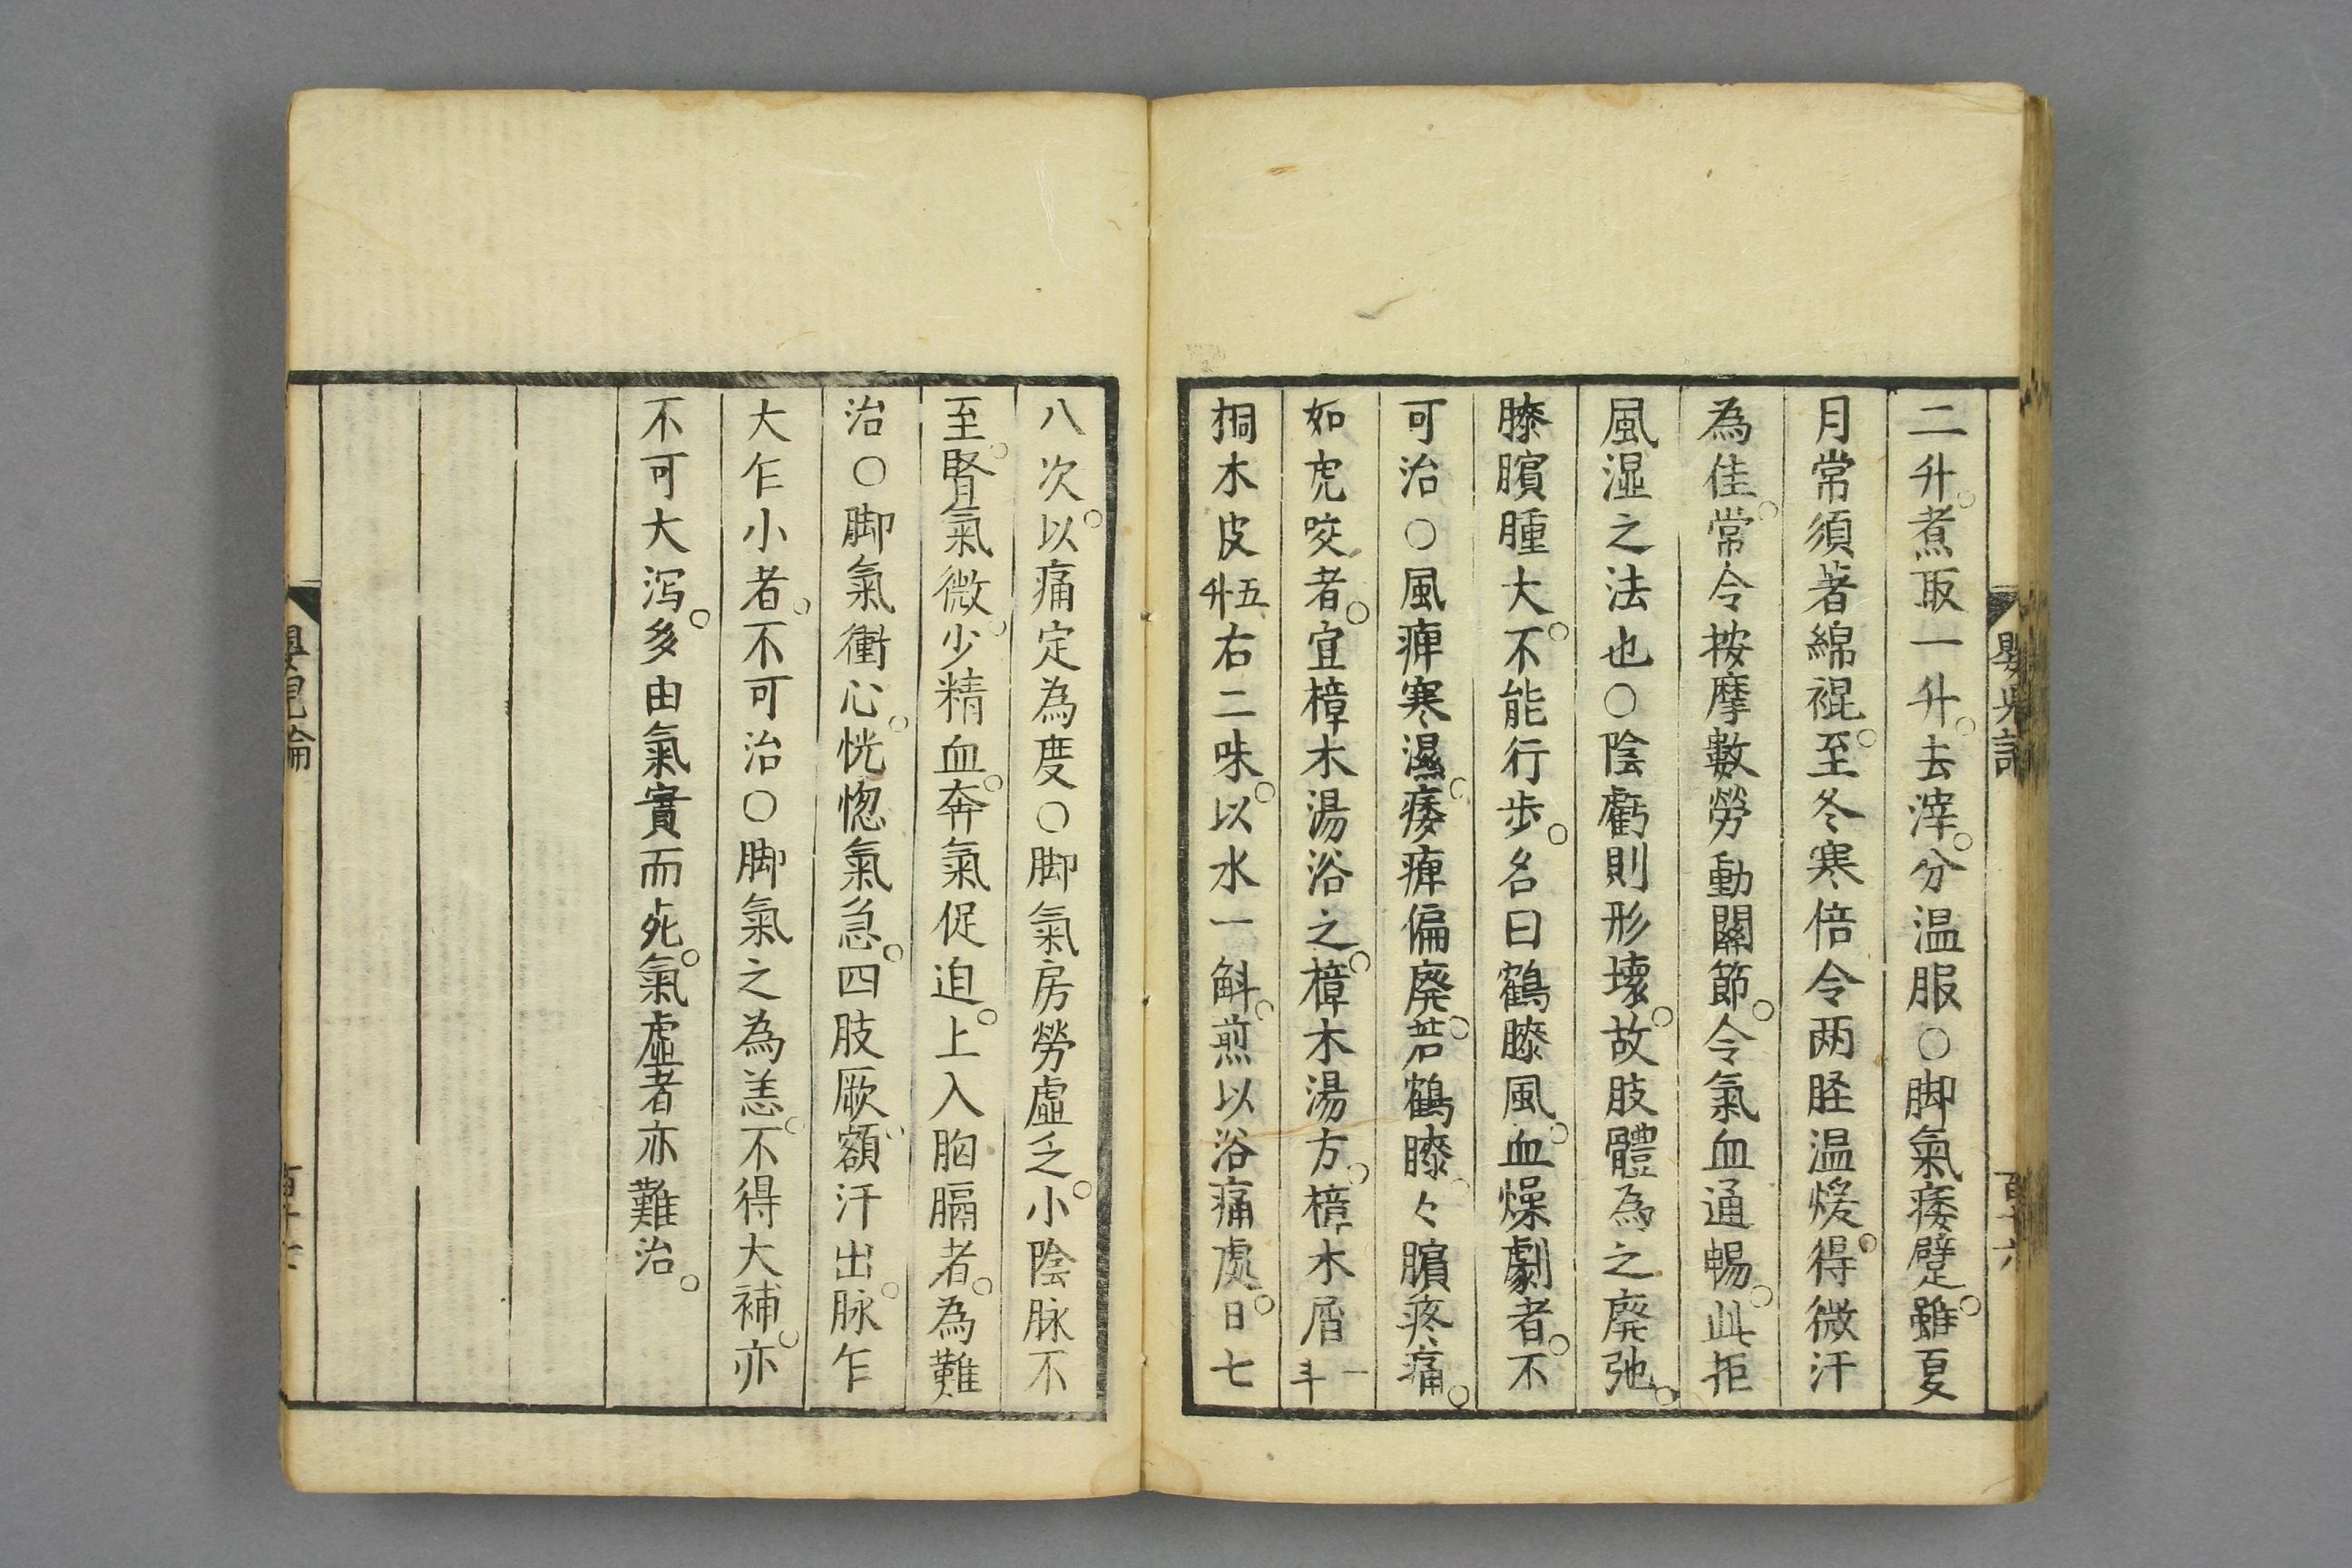 二升。煮取一升。去滓。分温服○脚氣痿躄。雖夏
月常須著綿裩。至冬寒倍令两胫温煖。得微汗
為佳。常令按摩數勞動關節。令氣血通暢。此拒
風湿之法也○陰虧則形壞。故肢體為之廃弛。
膝臏腫大。不能行歩。名曰鶴膝風。血燥劇者。不
可治○風痺寒濕。痿痺偏廃。若鶴膝。々臏疼痛。
如虎咬者。宜樟木湯浴之。樟木湯方。樟木屑一斗
桐木皮五升右二味。以水一斛。煎以浴痛處。日七
八次。以痛定為度○脚氣房勞虛乏。小陰脉不
至。腎氣微。少精血。奔氣促迫。上入胸膈者。為難
治○脚氣衝心。恍惚氣急。四肢厥。額汗出。脉乍
大乍小者。不可治○脚氣之為恙。不得大補。亦
不可大泻。多由氣實而死。氣虛者亦難治。